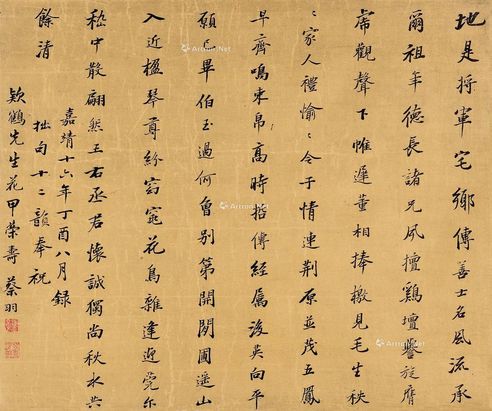 地是将軍宅鄉傳善士名風流承
爾祖年德長諸兄夙擅鷄壇譽旋膺
席觀聲下帷遲董相捧檄見毛生秩
〻家人禮愉〻令子情連荆原並茂五鳳
早齊鳴束帛高時招傳經屬後英向平
願已畢伯玉過何曾别第開閑圃遥山
入近楹琴尊紛窈窕花鳥雜逢迎莞尔
嵇中散翩然王右丞君懷誠獨尚秋水共
餘清
嘉靖十六年丁酉八月録
拙句十二韻奉祝
欵鶴先生花甲榮壽 蔡羽
Artron.Net
雅昌艺术网